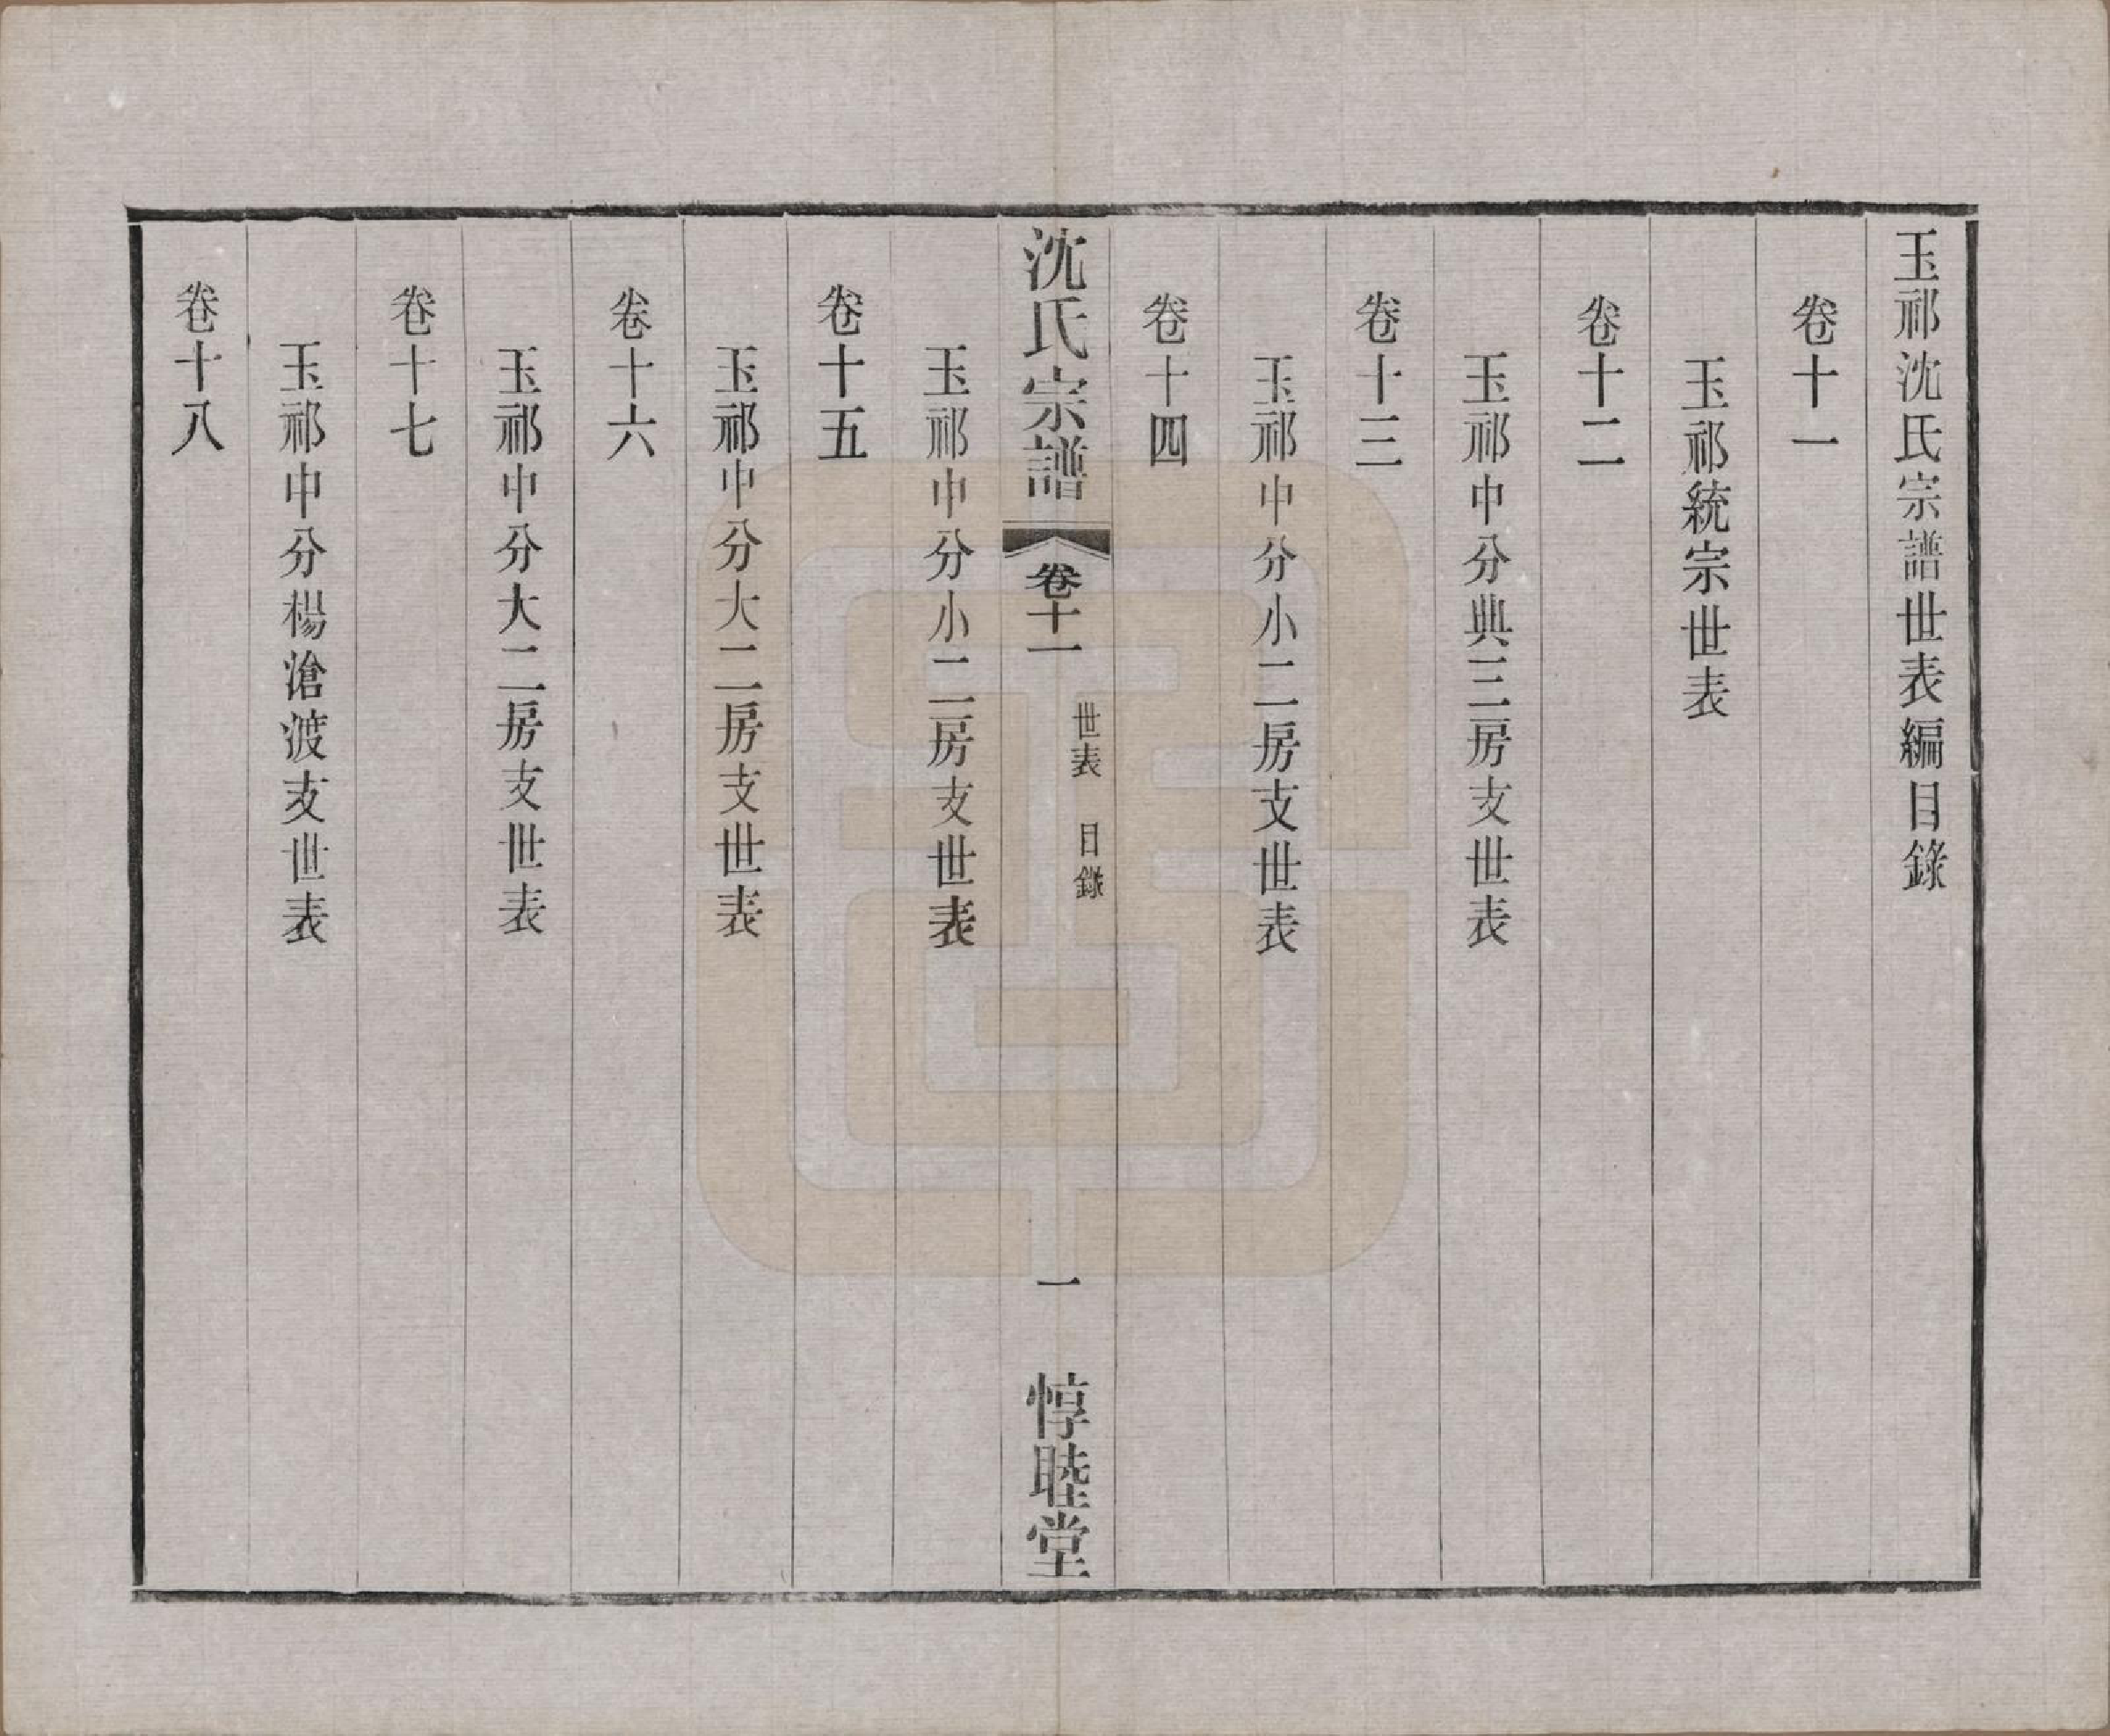 玉祁沈氏宗譜世表編目錄
卷十一
玉祁統宗世表
卷十二
玉祁中分典三房支世表
卷十三
玉祁中分小二房支世表
卷十四
沈氏宗譜
卷十一
世表 目錄
一
惇睦堂
玉祁中分小二房支世表
卷十五
玉祁中分大二房支世表
卷十六
玉祁中分大二房支世表
卷十七
玉祁中分楊滄渡支世表
卷十八